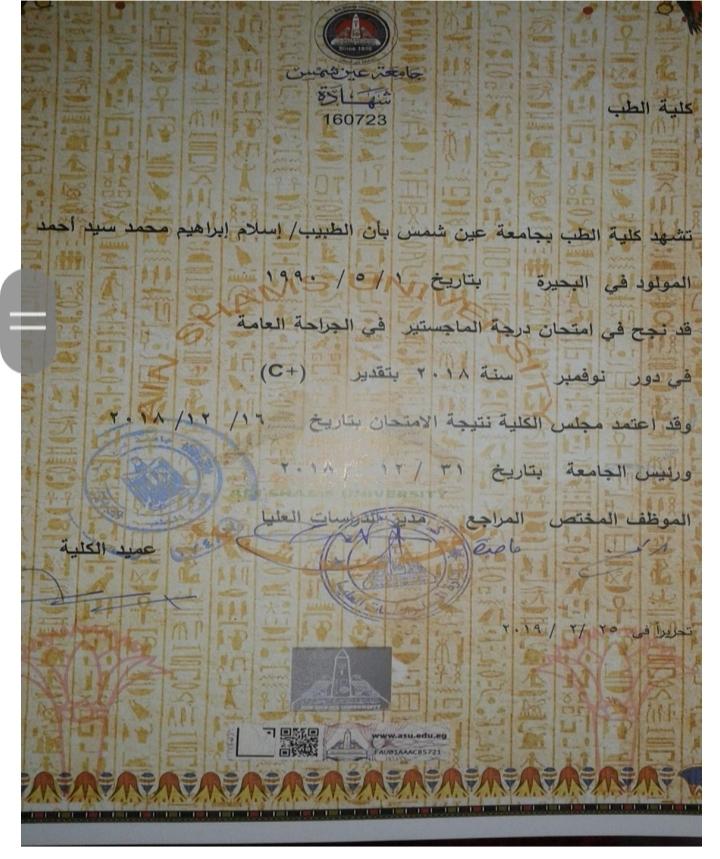 Since 1950
جامعة عين شمس
شهادة
160723
كلية الطب
تشهد كلية الطب بجامعة عين شمس بأن الطبيب/ إسلام إبراهيم محمد سيد أحمد
المولود في البحيرة بتاريخ ١ / ٥ / ١٩٩٠
قد نجح في امتحان درجة الماجستير في الجراحة العامة
في دور نوفمبر سنة ٢٠١٨ بتقدير (C+)
وقد اعتمد مجلس الكلية نتيجة الامتحان بتاريخ ١٦/ ١٢/ ٢٠١٨
ورئيس الجامعة بتاريخ ٣١ / ١٢ / ٢٠١٨
AIN SHAMS UNIVERSITY
AIN SHAMS UNIVERSITY
الموظف المختص المراجع مدير الدراسات العليا
عميد الكلية
تحريرا في ٢٥ /٢ / ٢٠١٩
www.asu.edu.eg